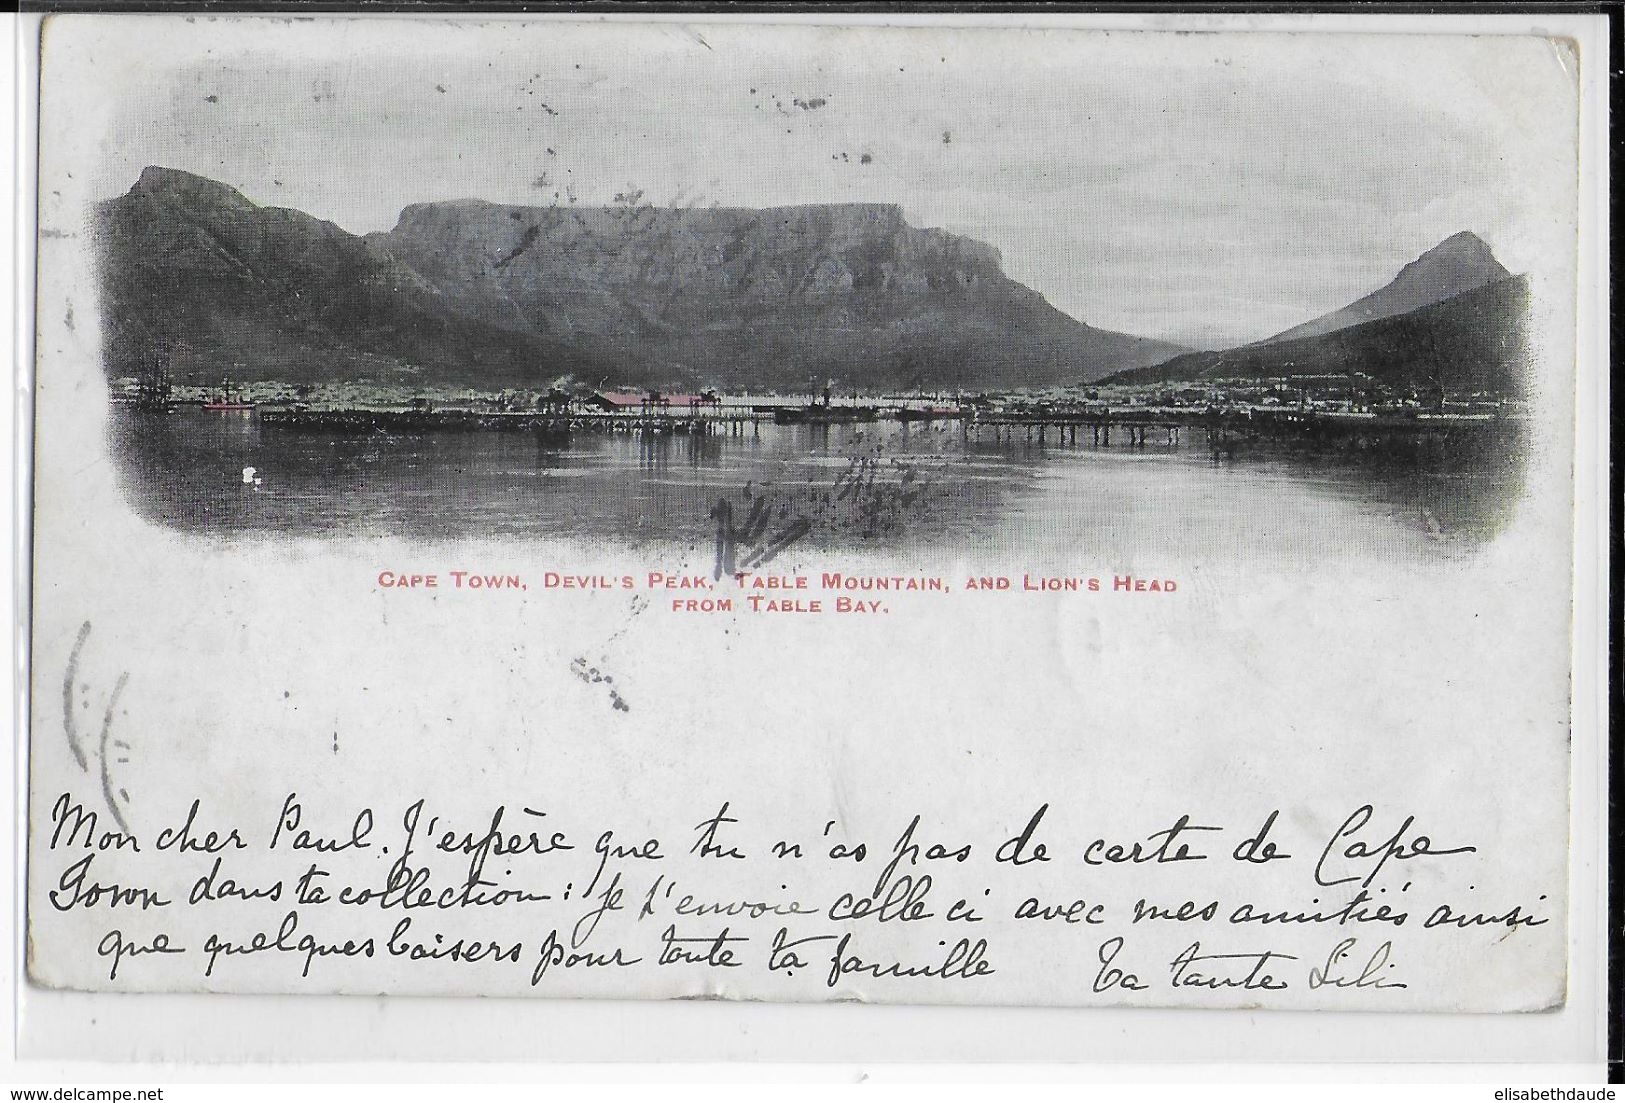 CAPE TOWN, DEVIL'S PEAK, TABLE MOUNTAIN, AND LION'S HEAD
FROM TABLE BAY.
Mon cher Paul. J'espère que tu n'as pas de carte de Cape
Town dans ta collection : je t'envoie celle ci avec mes amitiés ainsi
que quelques baisers pour toute ta famille Ta tante Lili
delcampe.net
elisabethdaude